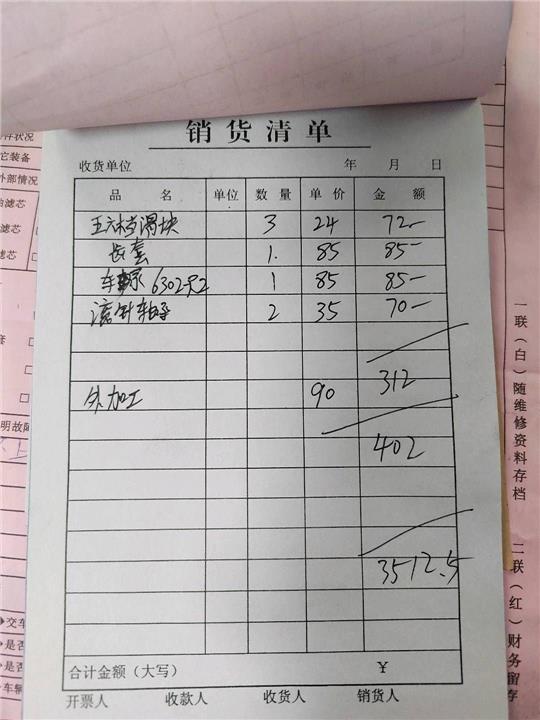 销货清单
收货单位 年 月 日
品 名 单位 数量 单价 金 额
五六档滑块 3 24 72-
长套 1. 85 85-
6302-R2 1 85 85-
滚针轴承 2 35 70-
312
外加工 90
402
3512.5
合计金额（大写） ¥
开票人 收款人 收货人 销货人
一联（白）随维修资料存档
二联（红）财务留存
件状况
它装备
外部情况
滤芯
滤芯
明故障
交车
是否
是否
车辆